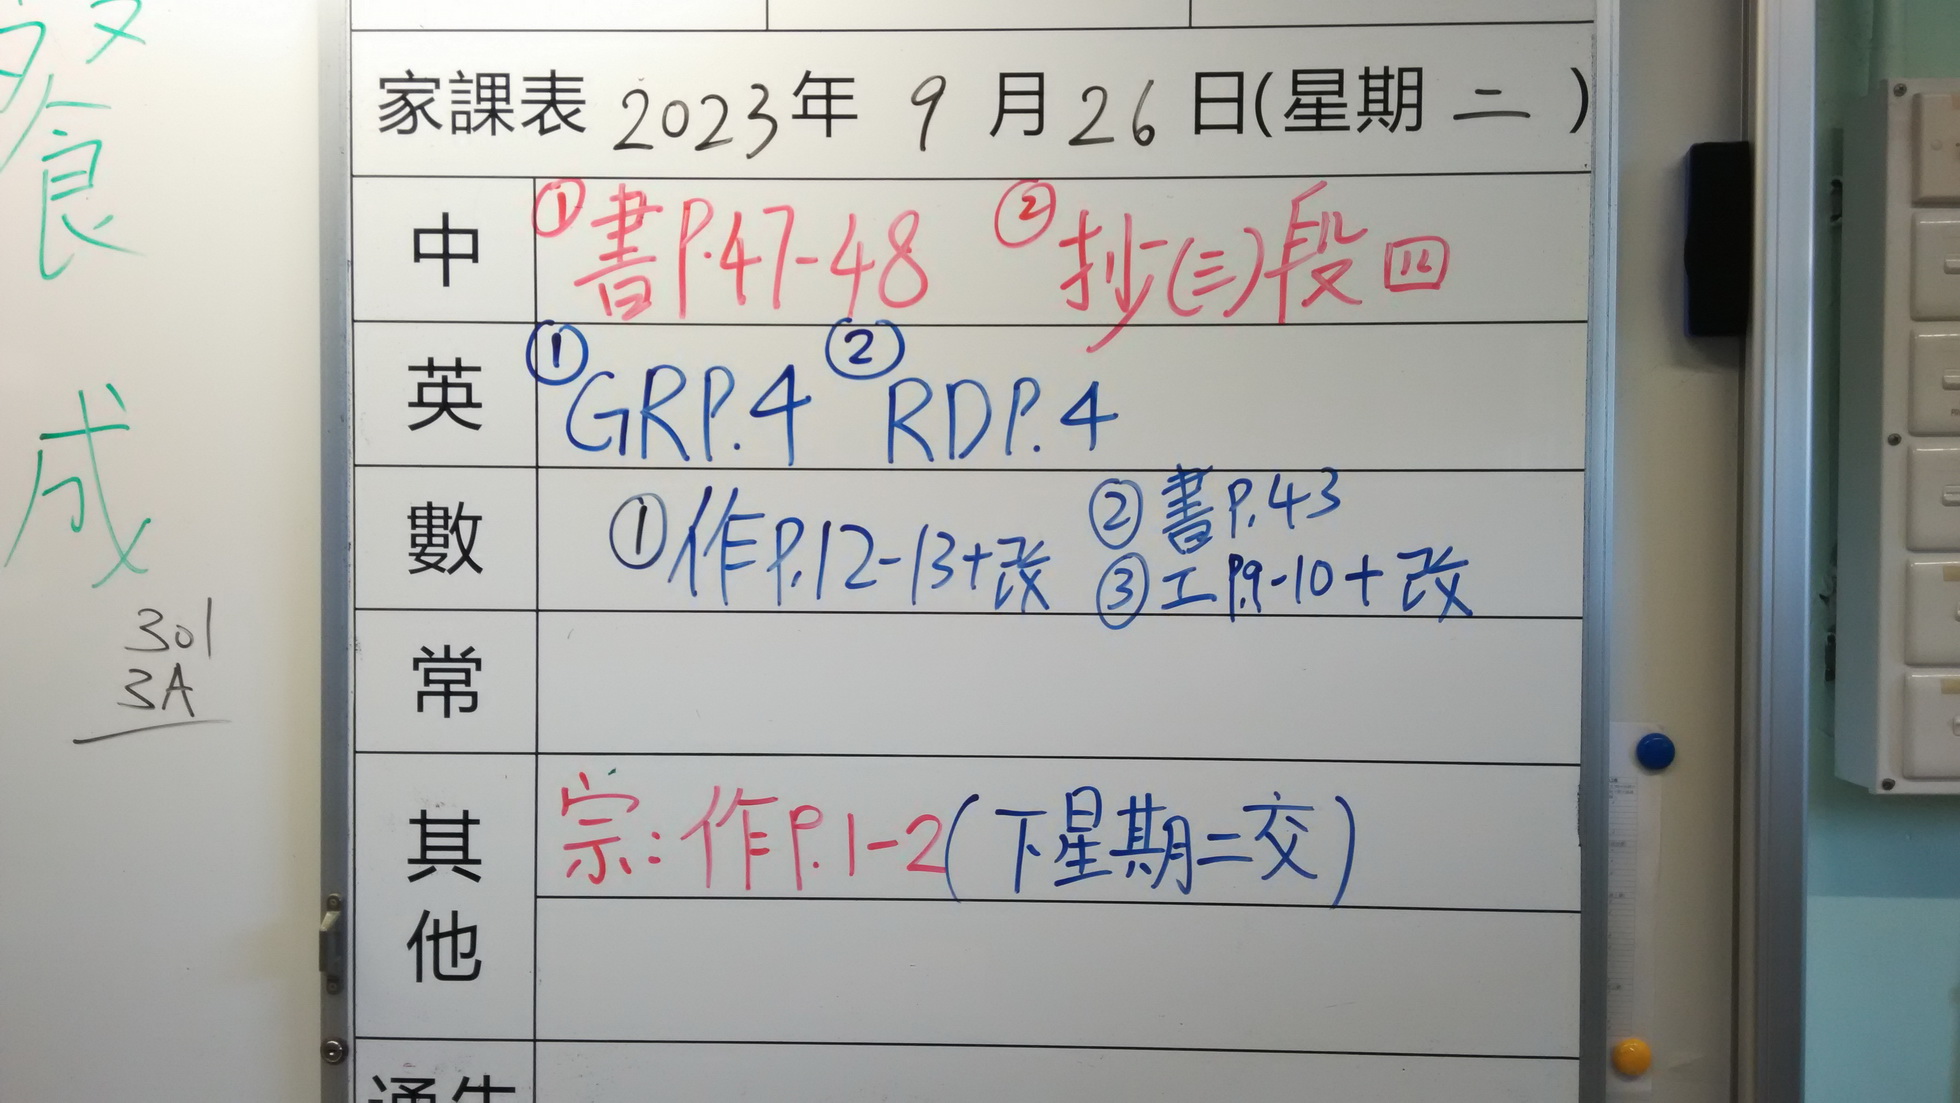 餐
成
301
3A
家課表 2023年 9月26日(星期二)
中 ①書P.47-48 ②抄(三)段四
英 ①GRP.4 ②RDP.4
數 ①作P.12-13+改 ②書P.43
③工P.9-10+改
常
其他 宗:作P.1-2(下星期二交)
通告